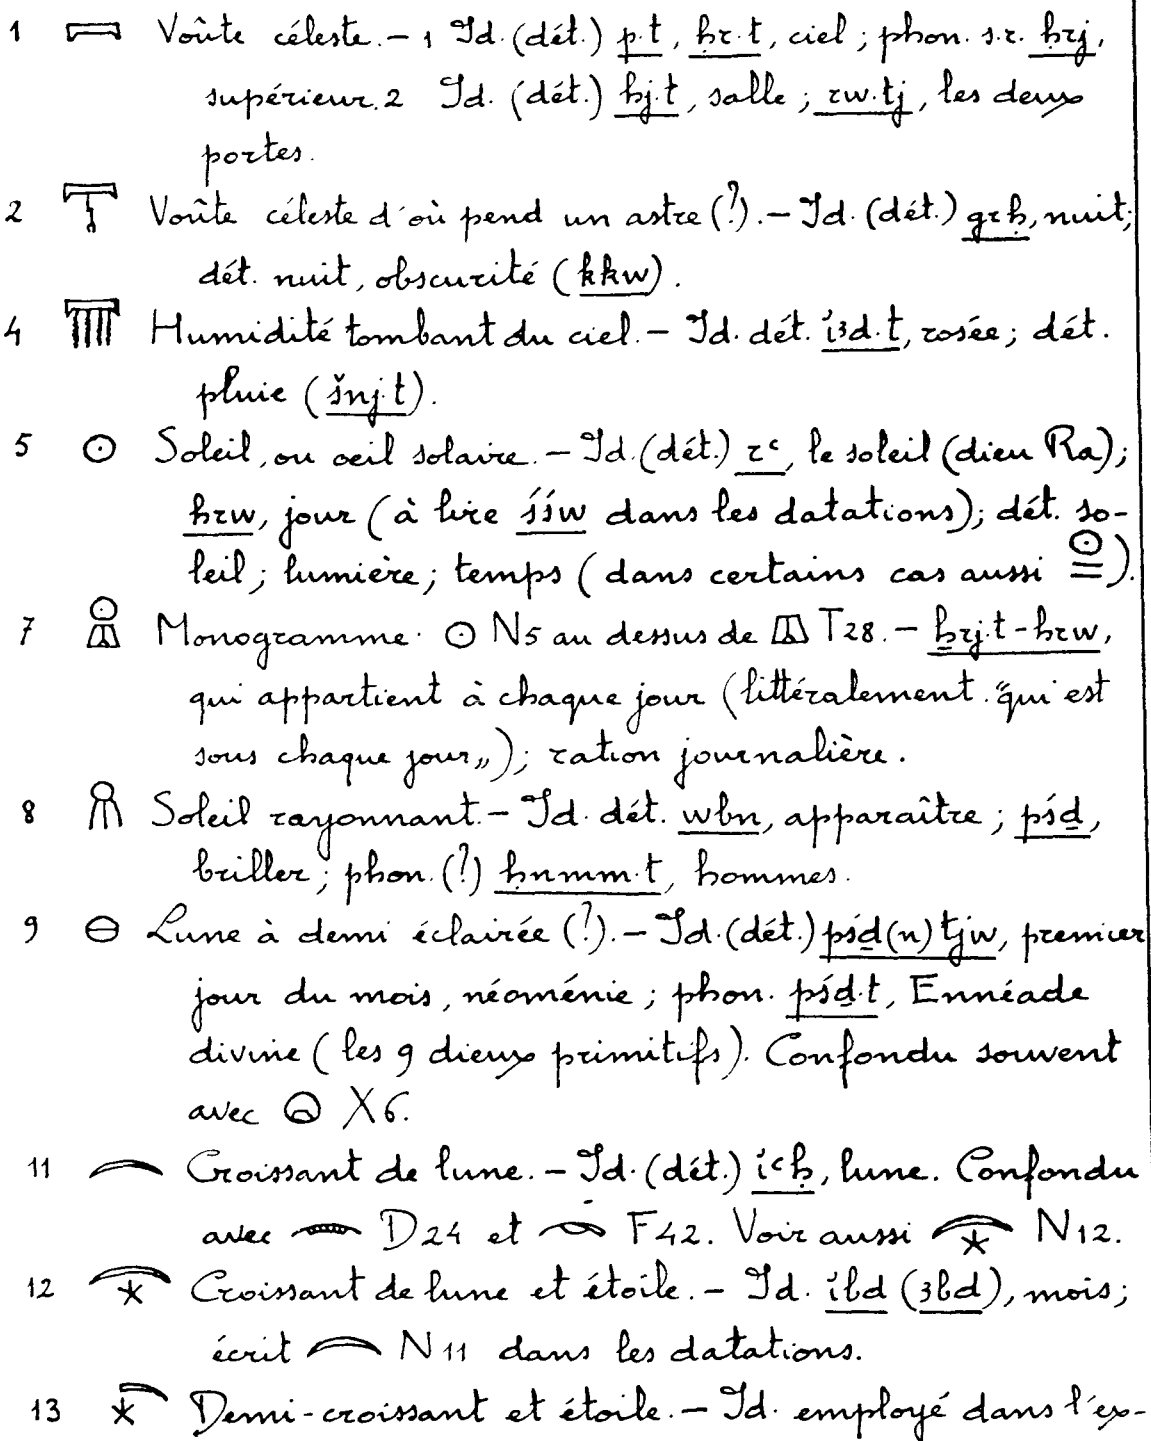 1 𓇯 Voûte céleste. – 1 Id. (dét.) p.t, ḥr.t, ciel ; phon. s.r. ḥrj,
supérieur. 2 Id. (dét.) hj.t, salle ; rw.tj, les deux
portes.
2 𓇰 Voûte céleste d'où pend un astre (?). – Id. (dét.) grḥ, nuit;
dét. nuit, obscurité (kkw).
4 𓇲 Humidité tombant du ciel. – Id. dét. i3d.t, rosée ; dét.
pluie (šnj.t).
5 𓇳 Soleil, ou œil solaire. – Id. (dét.) rʿ, le soleil (dieu Ra);
hrw, jour (à lire śśw dans les datations); dét. so-
leil ; lumière ; temps (dans certains cas aussi 𓇳 =).
7 𓇵 Monogramme. 𓇳 N5 au dessus de 𓌨 T28. – ẖrj.t-hrw,
qui appartient à chaque jour (littéralement "qui est
sous chaque jour„); ration journalière.
8 𓇶 Soleil rayonnant. – Id. dét. wbn, apparaître ; pśḏ,
briller ; phon. (?) ḥnmm.t, hommes.
9 𓇷 Lune à demi éclairée (?). – Id. (dét.) pśḏ(n)tjw, premier
jour du mois, néoménie ; phon. pśḏ.t, Ennéade
divine (les 9 dieux primitifs). Confondu souvent
avec 𓏖 X6.
11 𓇹 Croissant de lune. – Id. (dét.) iʿḥ, lune. Confondu
avec 𓂎 D24 et 𓄹 F42. Voir aussi 𓇺 N12.
12 𓇺 Croissant de lune et étoile. – Id. ibd (3bd), mois ;
écrit 𓇹 N11 dans les datations.
13 𓇻 Demi-croissant et étoile. – Id. employé dans l'ex-